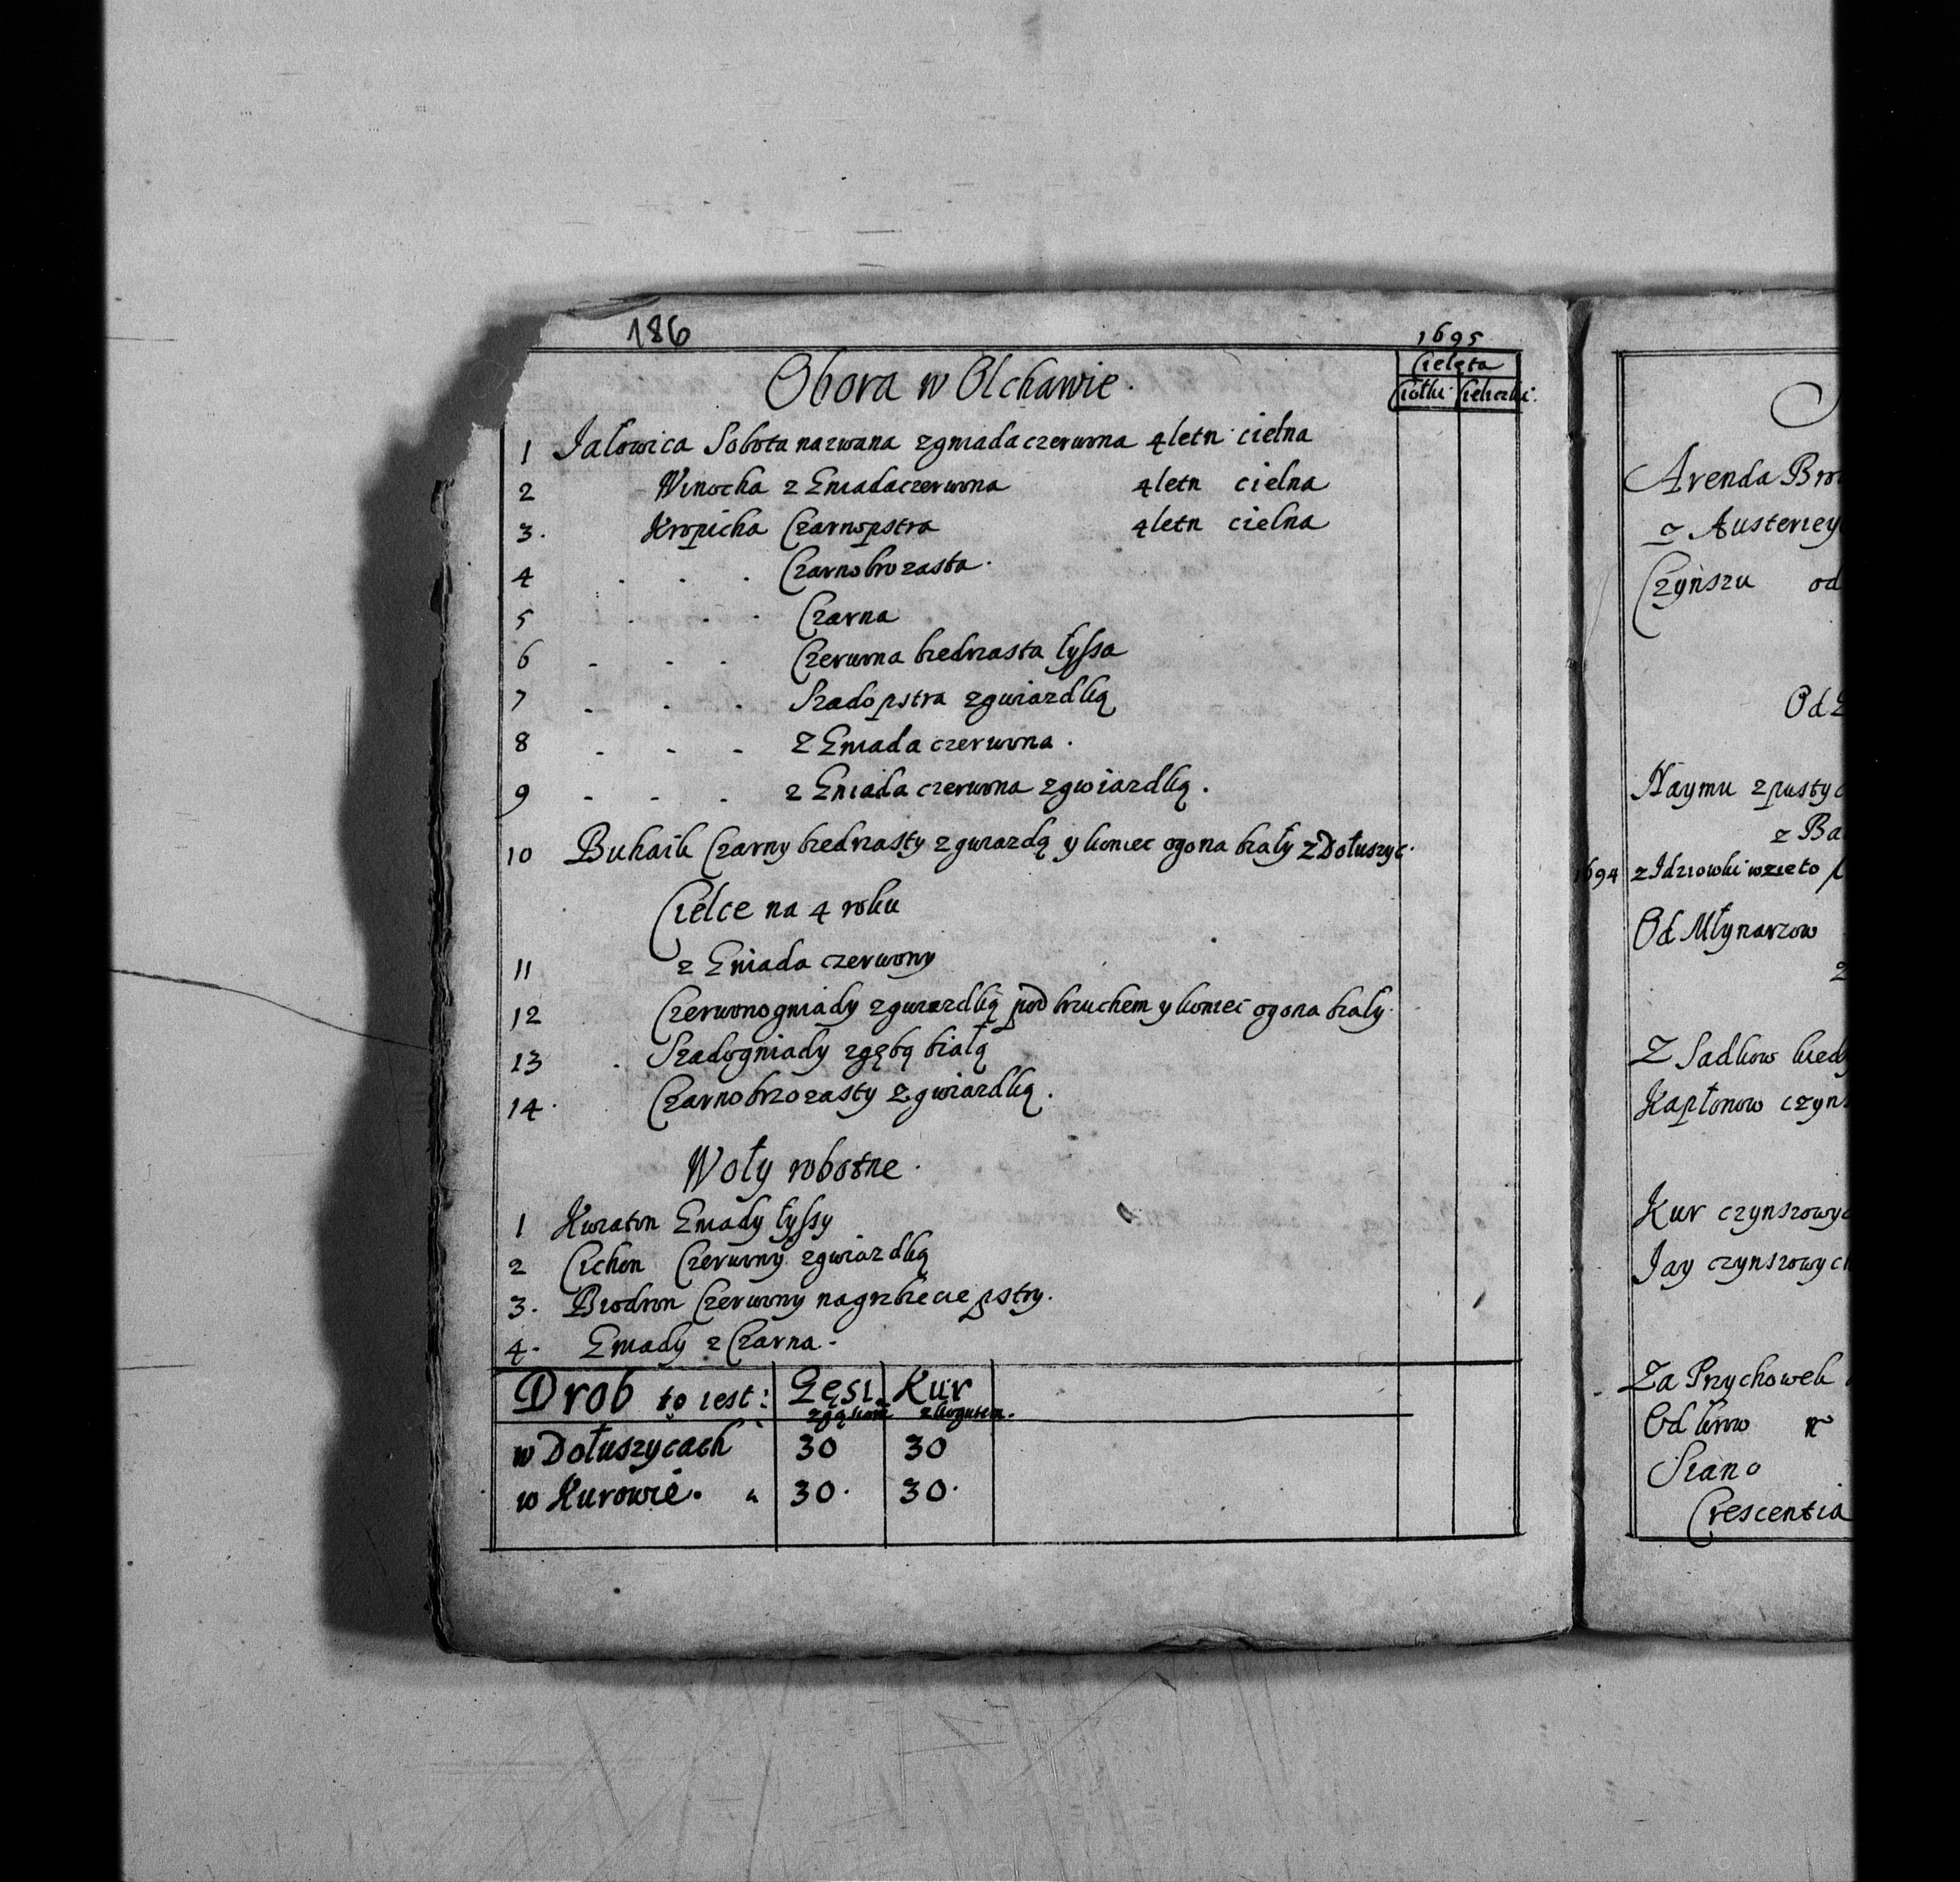 186
1695
Cielęta
Ciołki Cieliczki
Obora w Olchawie.
1 Jałowica Sobota nazwana zgniadaczerwona 4letn cielna
2 Winocha z Gniadaczerwona 4letn cielna
3. Kropicha Czarnopstra 4letn cielna
4 . . . Czarnobrozasta.
5 . . . Czarna
6 . . . Czerwona biedrzasta łyssa
7 . . . Szadopstra zgwiazdką
8 . . . Z Gniada czerwona.
9 . . . z Gniada czerwona zgwiazdką.
10 Buhaik Czarny biedrzasty zgwiazdą y koniec ogona biały z Dołuszyc.
Cielce na 4 roku
11 z Gniada czerwony
12 Czerwonogniady zgwiazdką pod brzuchem y koniec ogona biały.
13 . Szadogniady zgębą białą
14. Czarnobrzozasty zgwiazdką.
Woły robotne.
1 Kwiaton Gniady łyssy
2 Cichon Czerwony zgwiazdką
3. Biodron Czerwony nagrzbiecie pstry.
4. Gniady z Czarna.
Drob to iest: Gęsi Kur
zgąsiorem zkogutem.
w Dołuszycach 30 30
w Kurowie. 30. 30.
Arenda
z Austeriey
Czyńszu od
Od
Naymu zpusty
z
1694 z Idziowki wzieto
Od Młynarzow
Z Sadkow
Kapłonow
Kur czynszowy
Jay czynszowych
Za Przychowek
Od krow
Siano
Crescentia